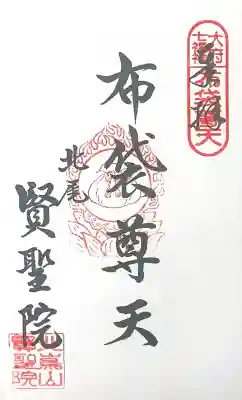 奉拝
大府
七福神
布袋尊天
布袋尊天
北尾
賢聖院
賢聖院